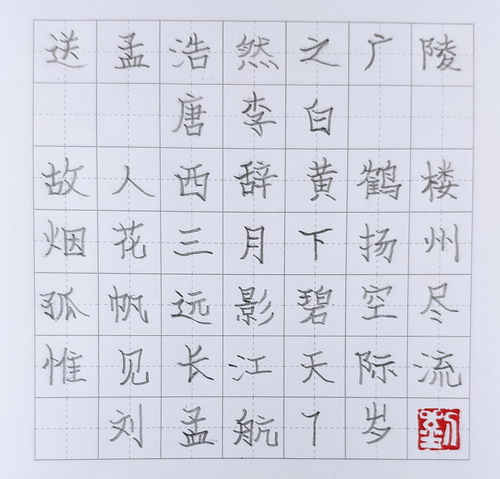 送孟浩然之广陵
唐李白
故人西辞黄鹤楼
烟花三月下扬州
孤帆远影碧空尽
惟见长江天际流
刘孟航7岁
劉